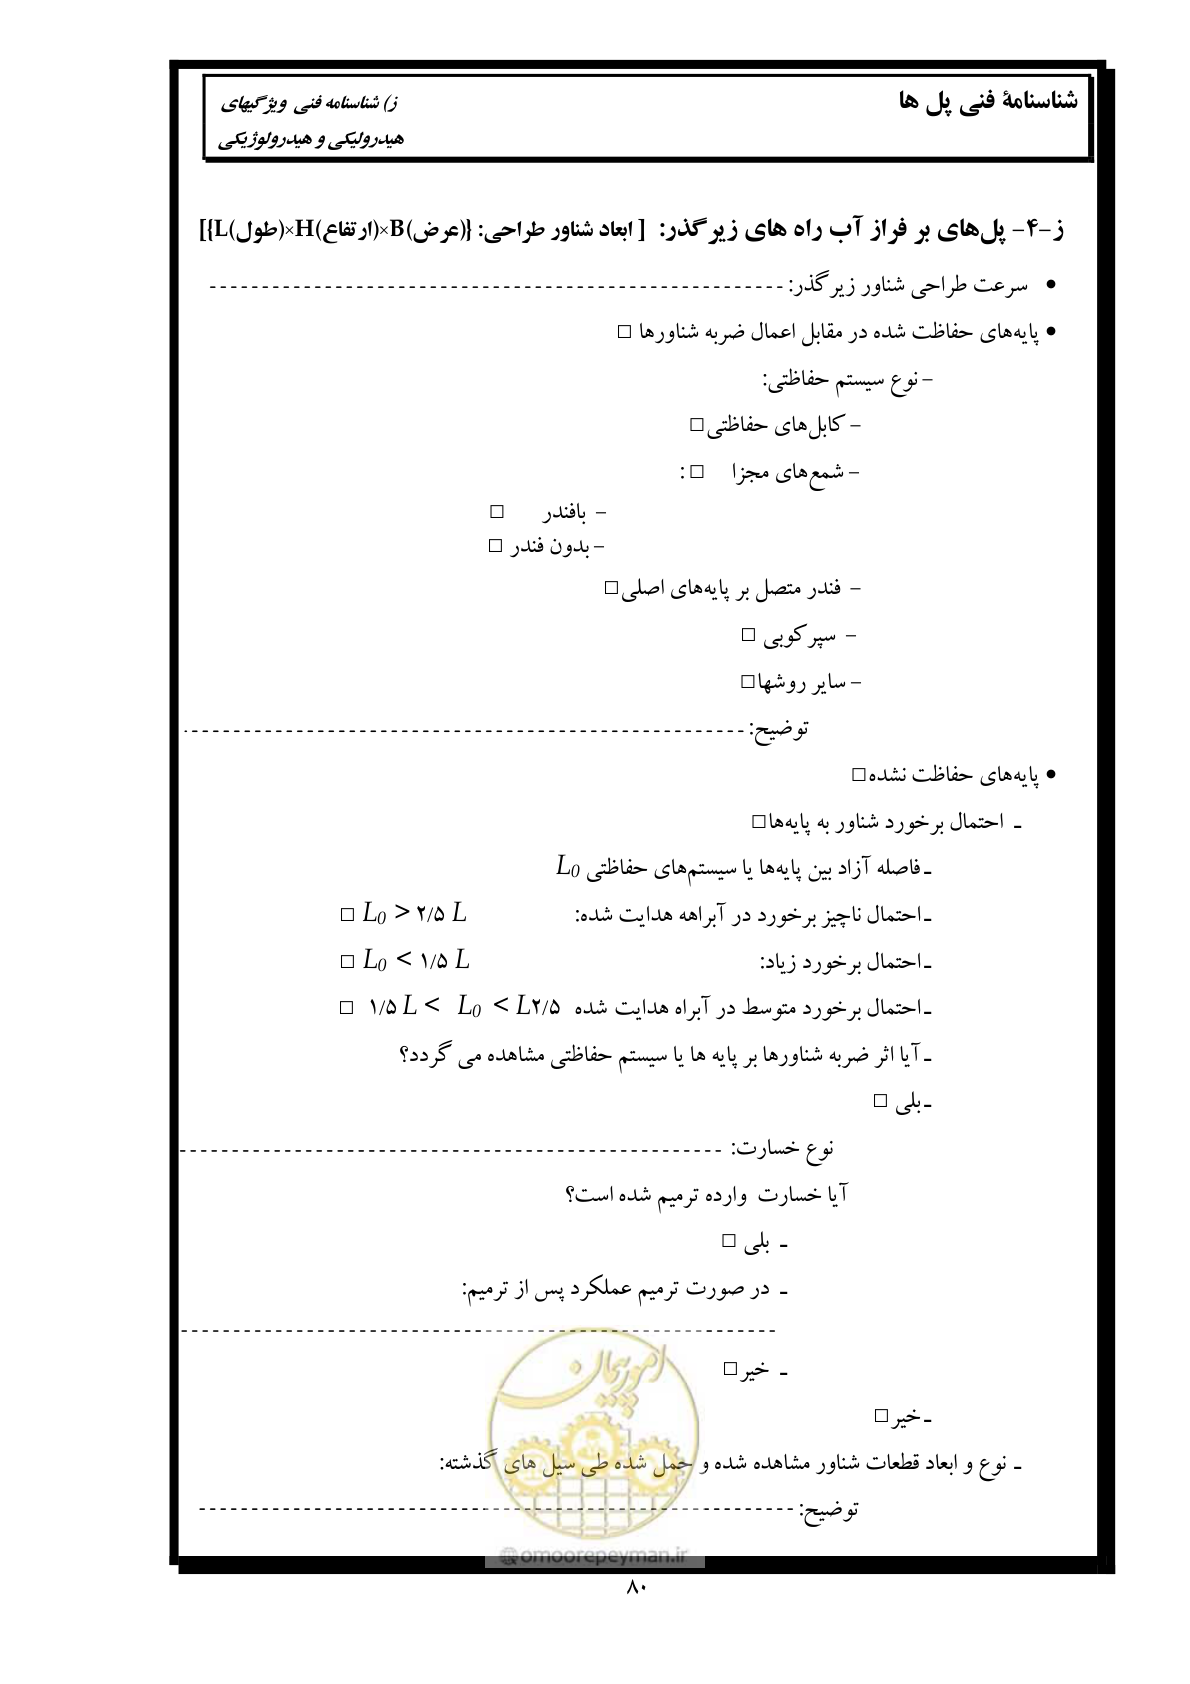 شناسنامهٔ فنی پل ها
ز) شناسنامه فنی ویژگیهای
هیدرولیکی و هیدرولوژیکی
ز-۴- پل‌های بر فراز آب راه های زیرگذر: [ ابعاد شناور طراحی: {(عرض)B×(ارتفاع)H×(طول)L}]
• سرعت طراحی شناور زیرگذر: -------------------------------------------------------
• پایه‌های حفاظت شده در مقابل اعمال ضربه شناورها □
– نوع سیستم حفاظتی:
– کابل‌های حفاظتی □
– شمع‌های مجزا □ :
– بافندر □
– بدون فندر □
– فندر متصل بر پایه‌های اصلی □
– سپرکوبی □
– سایر روشها □
توضیح: -----------------------------------------------------
• پایه‌های حفاظت نشده □
ـ احتمال برخورد شناور به پایه‌ها □
ـ فاصله آزاد بین پایه‌ها یا سیستم‌های حفاظتی L0
ـ احتمال ناچیز برخورد در آبراهه هدایت شده: L0 > ۲/۵ L □
ـ احتمال برخورد زیاد: L0 < ۱/۵ L □
ـ احتمال برخورد متوسط در آبراه هدایت شده ۱/۵ L < L0 < L۲/۵ □
ـ آیا اثر ضربه شناورها بر پایه ها یا سیستم حفاظتی مشاهده می گردد؟
ـ بلی □
نوع خسارت: ----------------------------------------------------
آیا خسارت وارده ترمیم شده است؟
ـ بلی □
ـ در صورت ترمیم عملکرد پس از ترمیم:
---------------------------------------------------------
ـ خیر □
ـ خیر □
ـ نوع و ابعاد قطعات شناور مشاهده شده و حمل شده طی سیل های گذشته:
توضیح: ---------------------------------------------------------
امور پیمان
@omoorepeyman.ir
۸۰